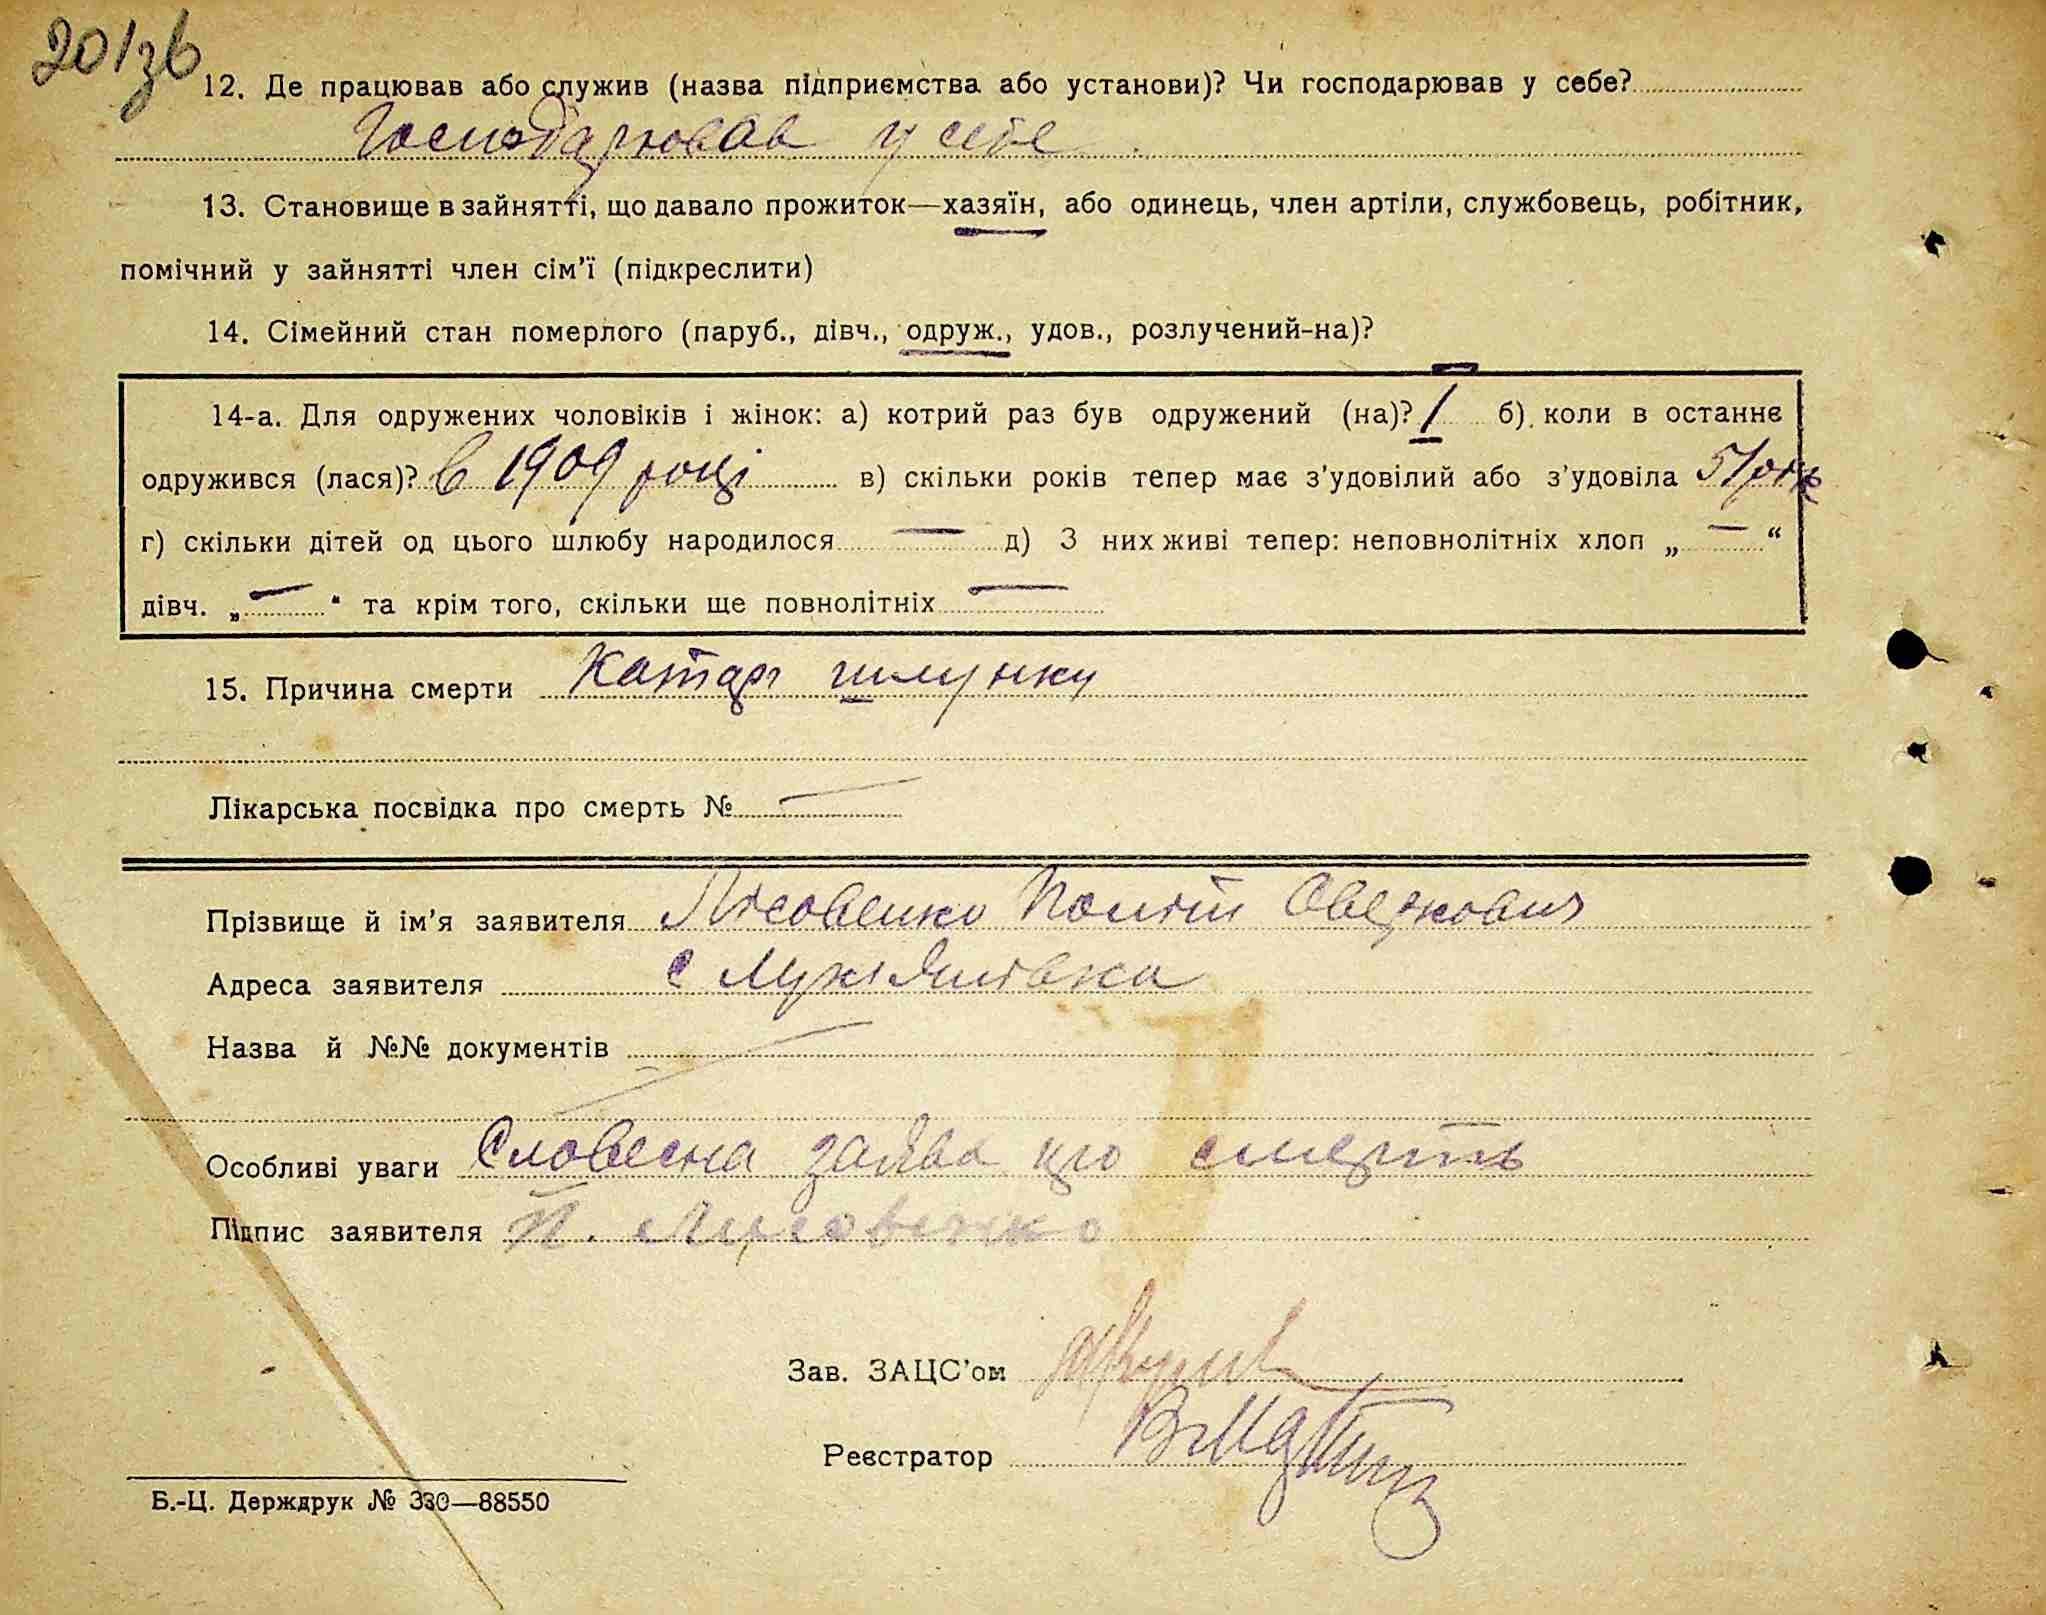 20/зв
12. Де працював або служив (назва підприємства або установи)? Чи господарював у себе?
Господарював у себе
13. Становище в зайнятті, що давало прожиток—хазяїн, або одинець, член артіли, службовець, робітник,
помічний у зайнятті член сім'ї (підкреслити)
14. Сімейний стан померлого (паруб., дівч., одруж., удов., розлучений-на)?
14-а. Для одружених чоловіків і жінок: а) котрий раз був одружений (на)? I б) коли в останнє
одружився (лася)? в 1909 році в) скільки років тепер має з'удовілий або з'удовіла 51 рік
г) скільки дітей од цього шлюбу народилося — д) З них живі тепер: неповнолітніх хлоп „ — “
дівч. „ — “ та крім того, скільки ще повнолітніх —
15. Причина смерти Катар шлунку
Лікарська посвідка про смерть № —
Прізвище й ім'я заявителя Лісовенко Полит Оверкович
Адреса заявителя с Лукіянівка
Назва й №№ документів —
Особливі уваги Словесна заява про смерть
Підпис заявителя П. Лисовенко
Зав. ЗАЦС'ом
Реєстратор
Б.-Ц. Держдрук № 330—88550